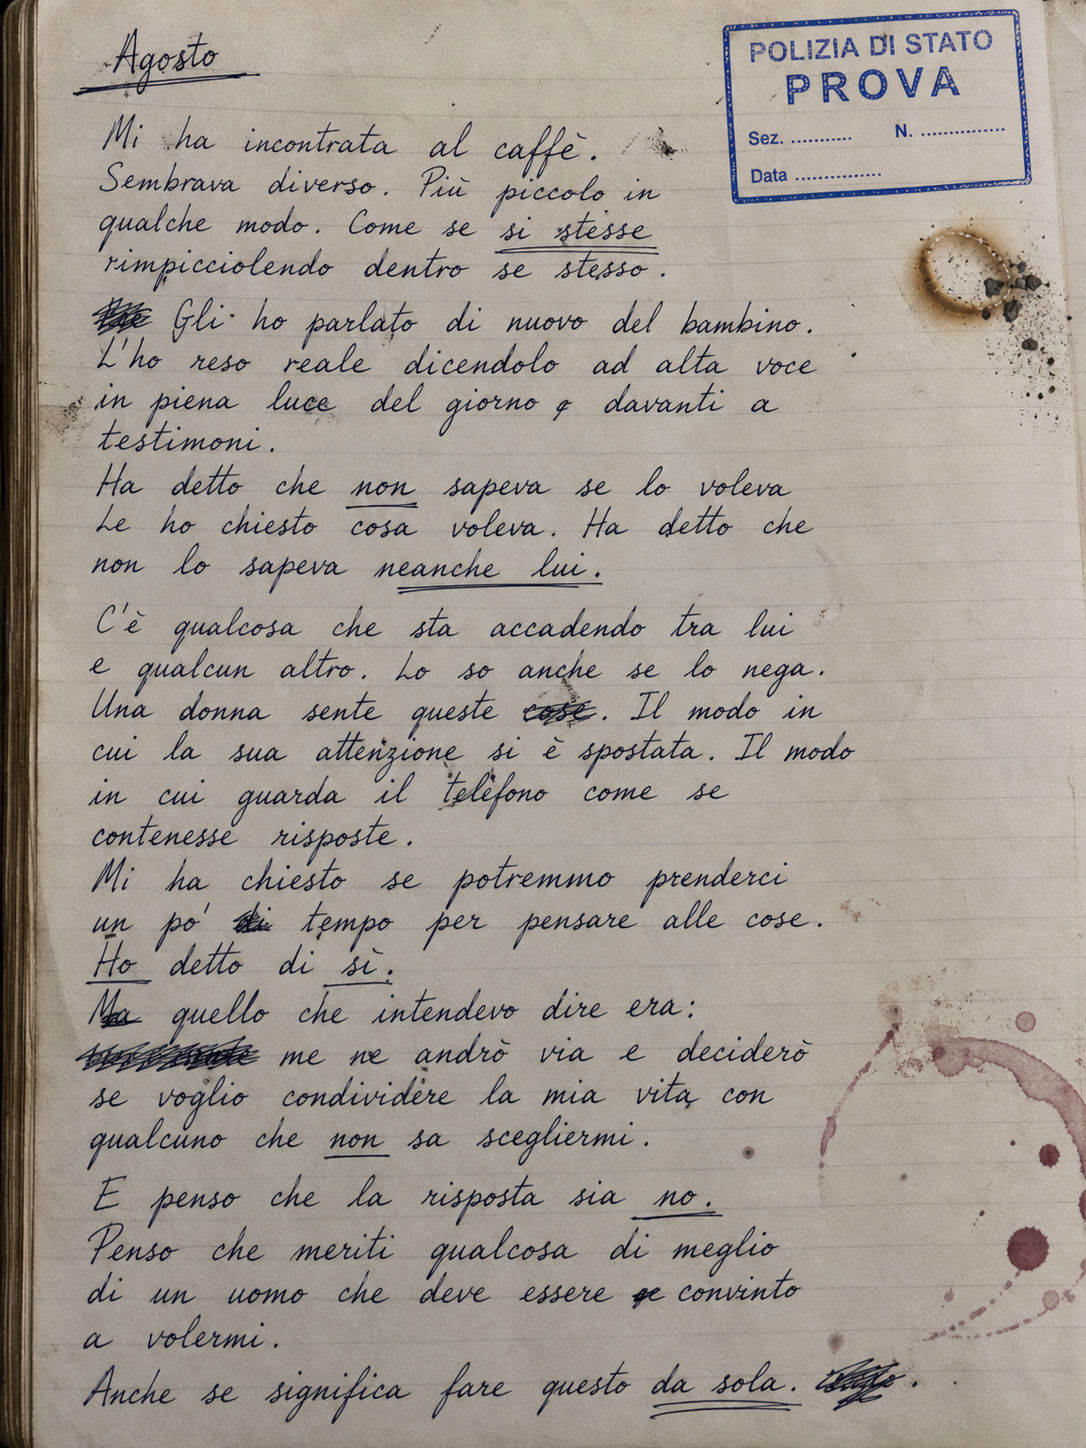 Agosto
POLIZIA DI STATO
PROVA
Sez. ........... N. ...............
Data ...............
Mi ha incontrata al caffè.
Sembrava diverso. Più piccolo in
qualche modo. Come se si stesse
rimpicciolendo dentro se stesso.
Gli ho parlato di nuovo del bambino.
L'ho reso reale dicendolo ad alta voce
in piena luce del giorno e davanti a
testimoni.
Ha detto che non sapeva se lo voleva
Le ho chiesto cosa voleva. Ha detto che
non lo sapeva neanche lui.
C'è qualcosa che sta accadendo tra lui
e qualcun altro. Lo so anche se lo nega.
Una donna sente queste cose. Il modo in
cui la sua attenzione si è spostata. Il modo
in cui guarda il telefono come se
contenesse risposte.
Mi ha chiesto se potremmo prenderci
un po' di tempo per pensare alle cose.
Ho detto di sì.
Ma quello che intendevo dire era:
me ne andrò via e deciderò
se voglio condividere la mia vita con
qualcuno che non sa scegliermi.
E penso che la risposta sia no.
Penso che meriti qualcosa di meglio
di un uomo che deve essere convinto
a volermi.
Anche se significa fare questo da sola.